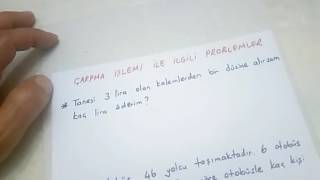 ÇARPMA İŞLEMİ İLE İLGİLİ PROBLEMLER
* Tanesi 3 lira olan kalemlerden bir düzine alırsam
kaç lira öderim?
46 yolcu taşımaktadır. 6 otobüs
otobüsle kaç kişi